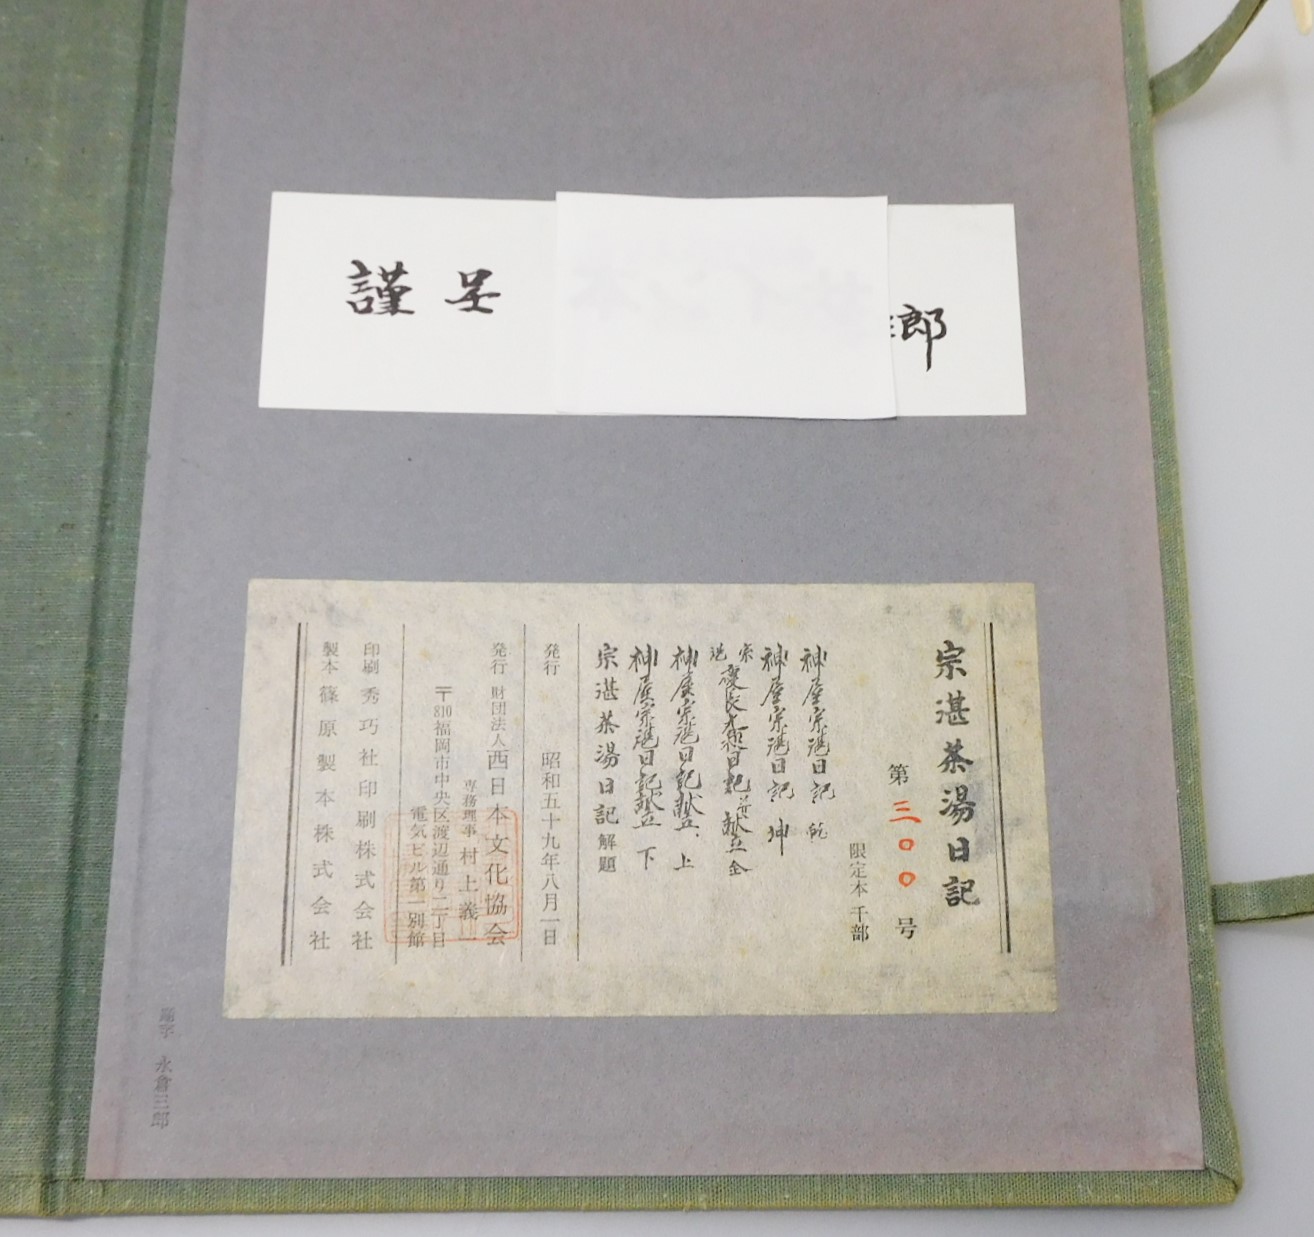 謹呈
郎
宗湛茶湯日記
第三〇〇号
限定本 千部
神屋宗湛日記 乾
神屋宗湛日記 坤
宗湛 慶長 日記 献立 全
神屋宗湛日記献立 上
神屋宗湛日記献立 下
宗湛茶湯日記解題
発行 昭和五十九年八月一日
発行 財団法人西日本文化協会
専務理事 村上義一
〒810福岡市中央区渡辺通り二丁目
電気ビル第一別館
印刷 秀巧社印刷株式会社
製本 篠原製本株式会社
題字 永倉三郎